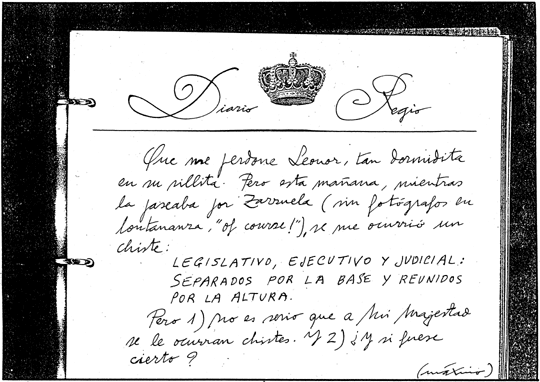 Diario Regio
Que me perdone Leonor, tan dormidita
en su sillita. Pero esta mañana, mientras
la paseaba por Zarzuela (sin fotógrafos en
lontananza, "of course!"), se me ocurrió un
chiste:
LEGISLATIVO, EJECUTIVO Y JUDICIAL:
SEPARADOS POR LA BASE Y REUNIDOS
POR LA ALTURA.
Pero 1) no es serio que a Mi Majestad
se le ocurran chistes. Y 2) ¿Y si fuese
cierto?
(máximo)